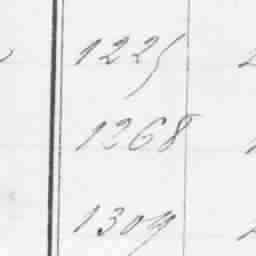 1225
1268
1309